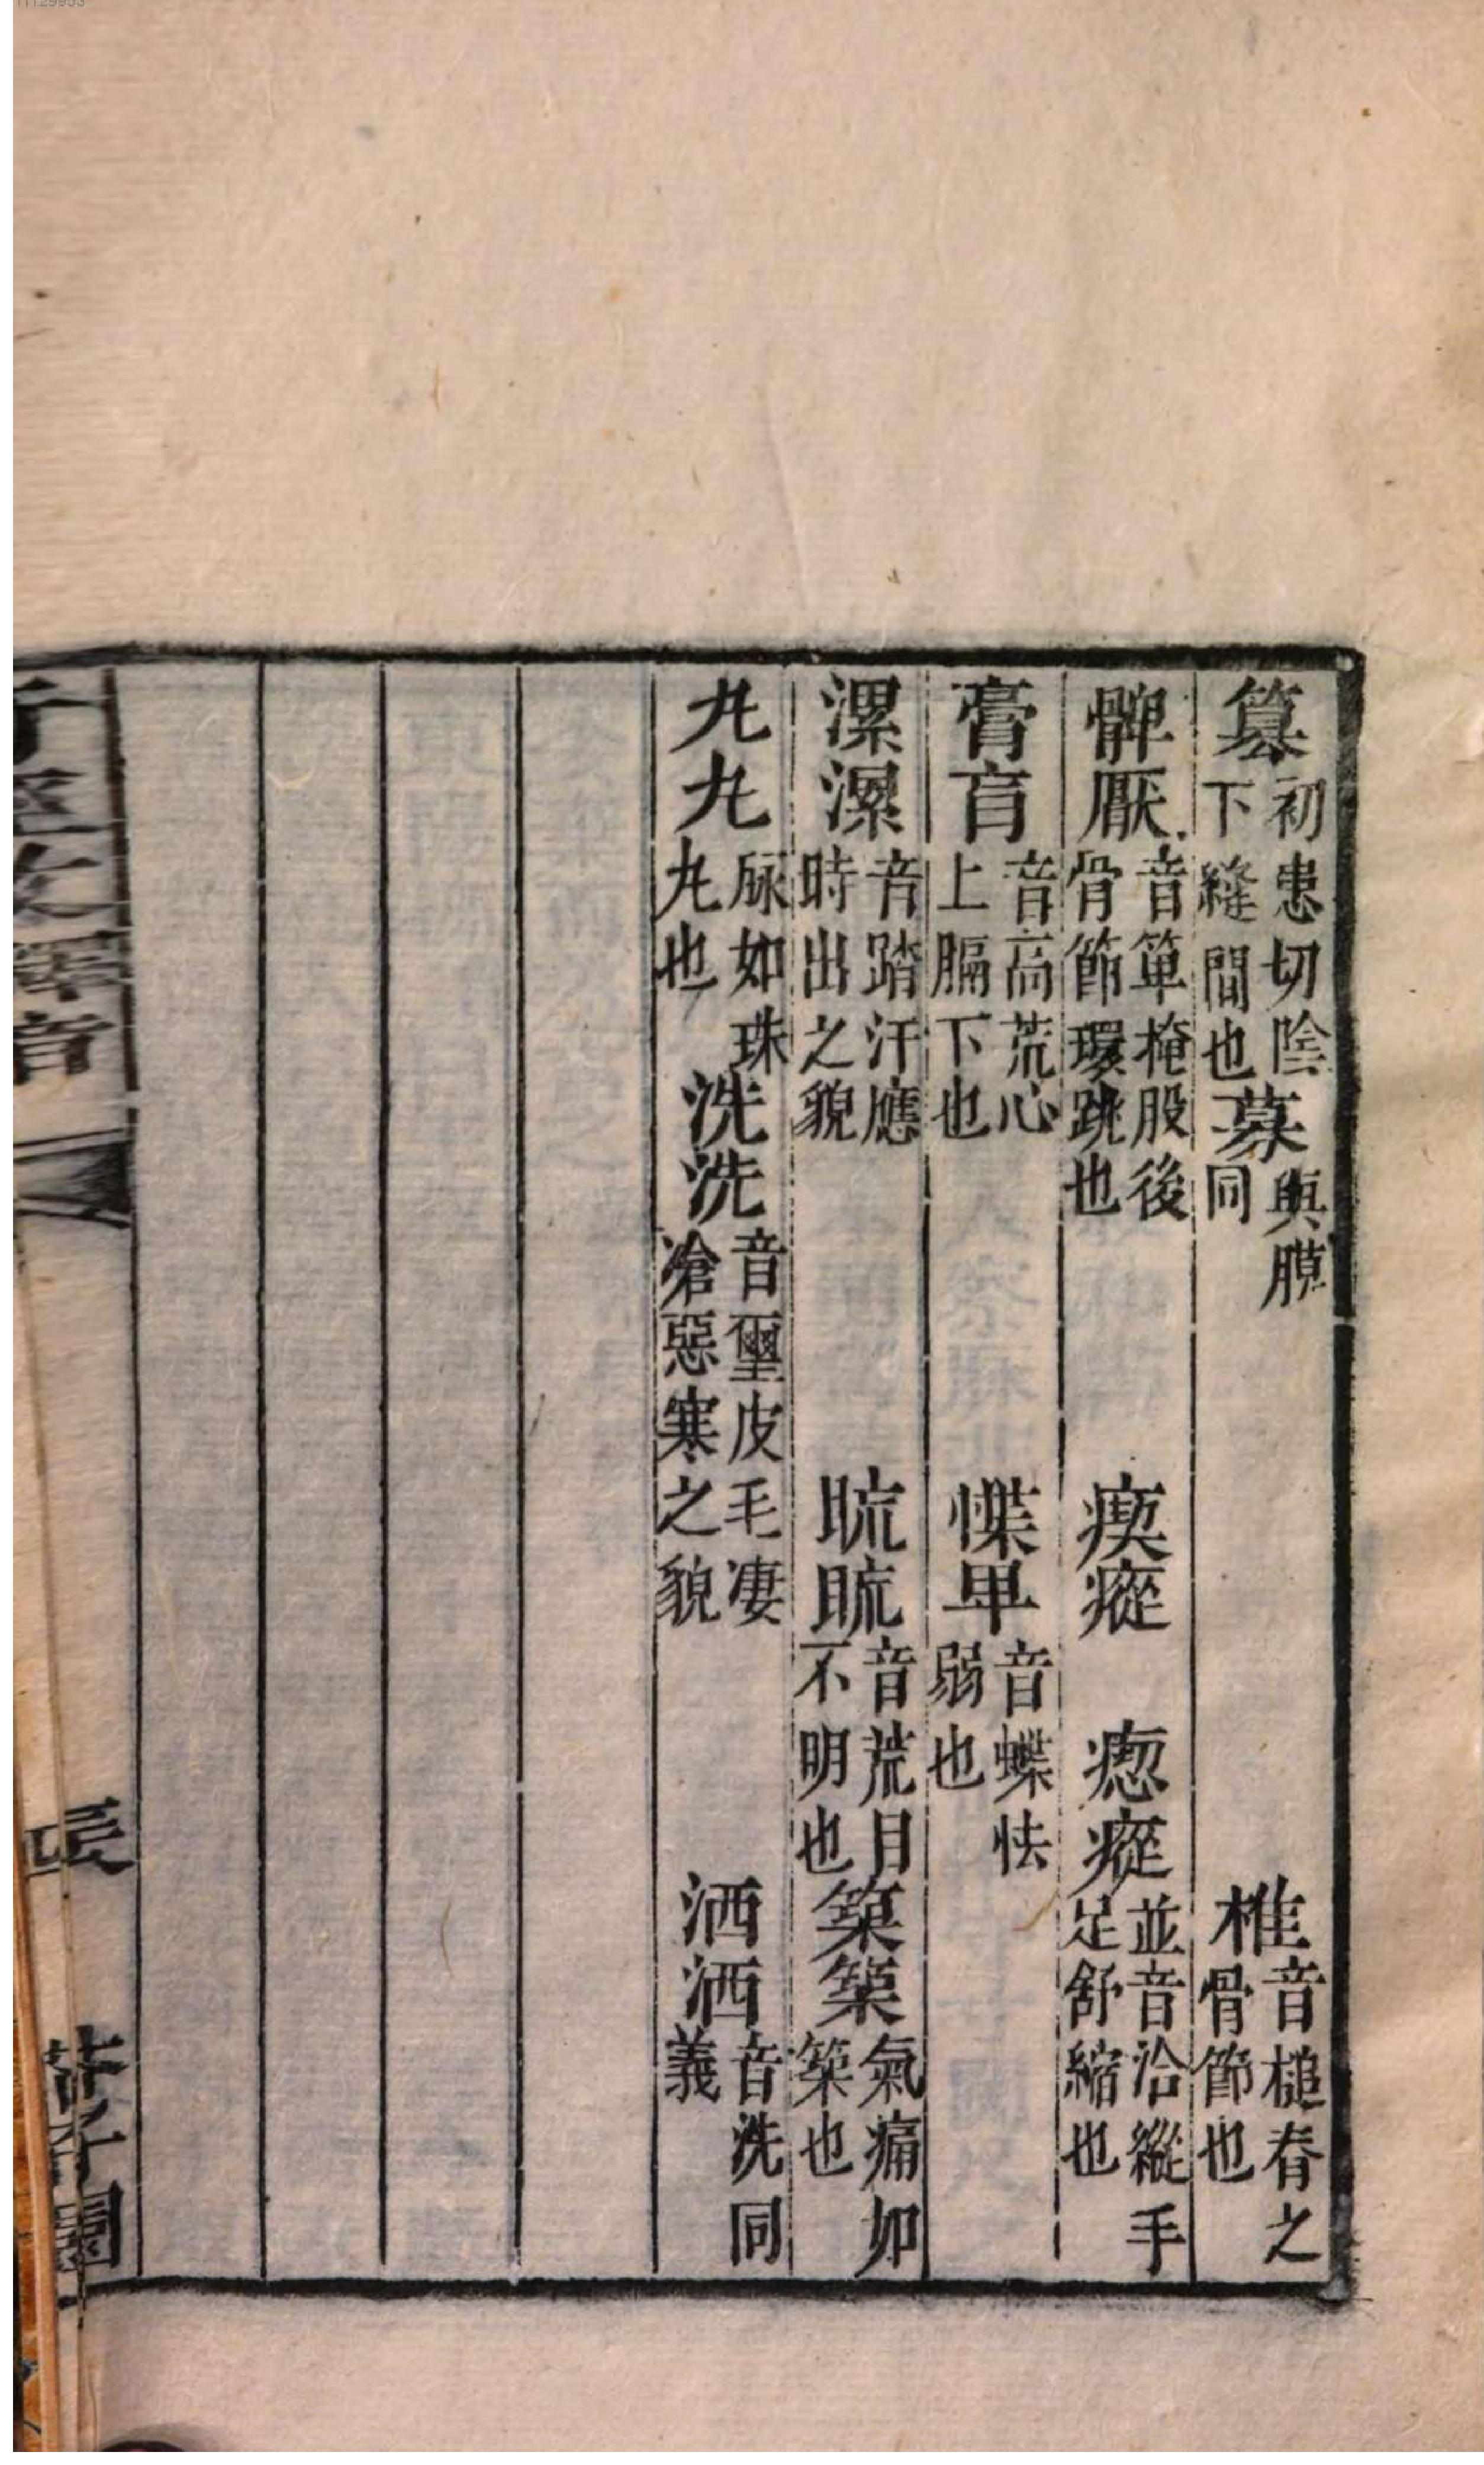 篡初患切陰下縫間也 募與膜同 椎音槌脊之骨節也
髀厭音箄掩股後骨節環跳也 瘈瘲 瘛瘲並音洽縱手足舒縮也
膏肓音高荒心上膈下也 惵卑音蝶怯弱也
漯漯音踏汗應時出之貌 䀮䀮音荒目不明也 築築氣痛如築也
丸丸脉如珠丸也 洗洗音璽皮毛凄滄惡寒之貌 洒洒音洗同義